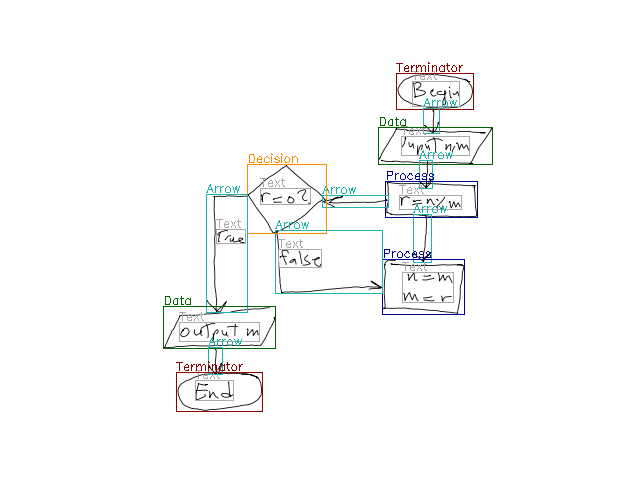 Terminator
Text
Begin
Arrow
Data
Text
input n,m
Arrow
Process
Text
r=n%m
Arrow
Decision
Text
r=0?
Arrow
Arrow
Text
True
Arrow
Text
false
Process
Text
n=m
m=r
Data
Text
output m
Arrow
Terminator
Text
End